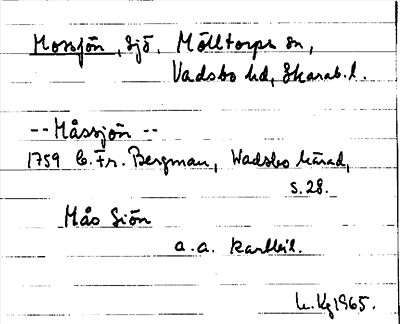 Mossjön, sjö, Mölltorps sn,
Vadsbo hd, Skarab. l.
-- Måssjön --
1759 C. Fr. Bergman, Wadsbo härad,
s. 28.
Mås Siön
a. a. kartbil.
1965.